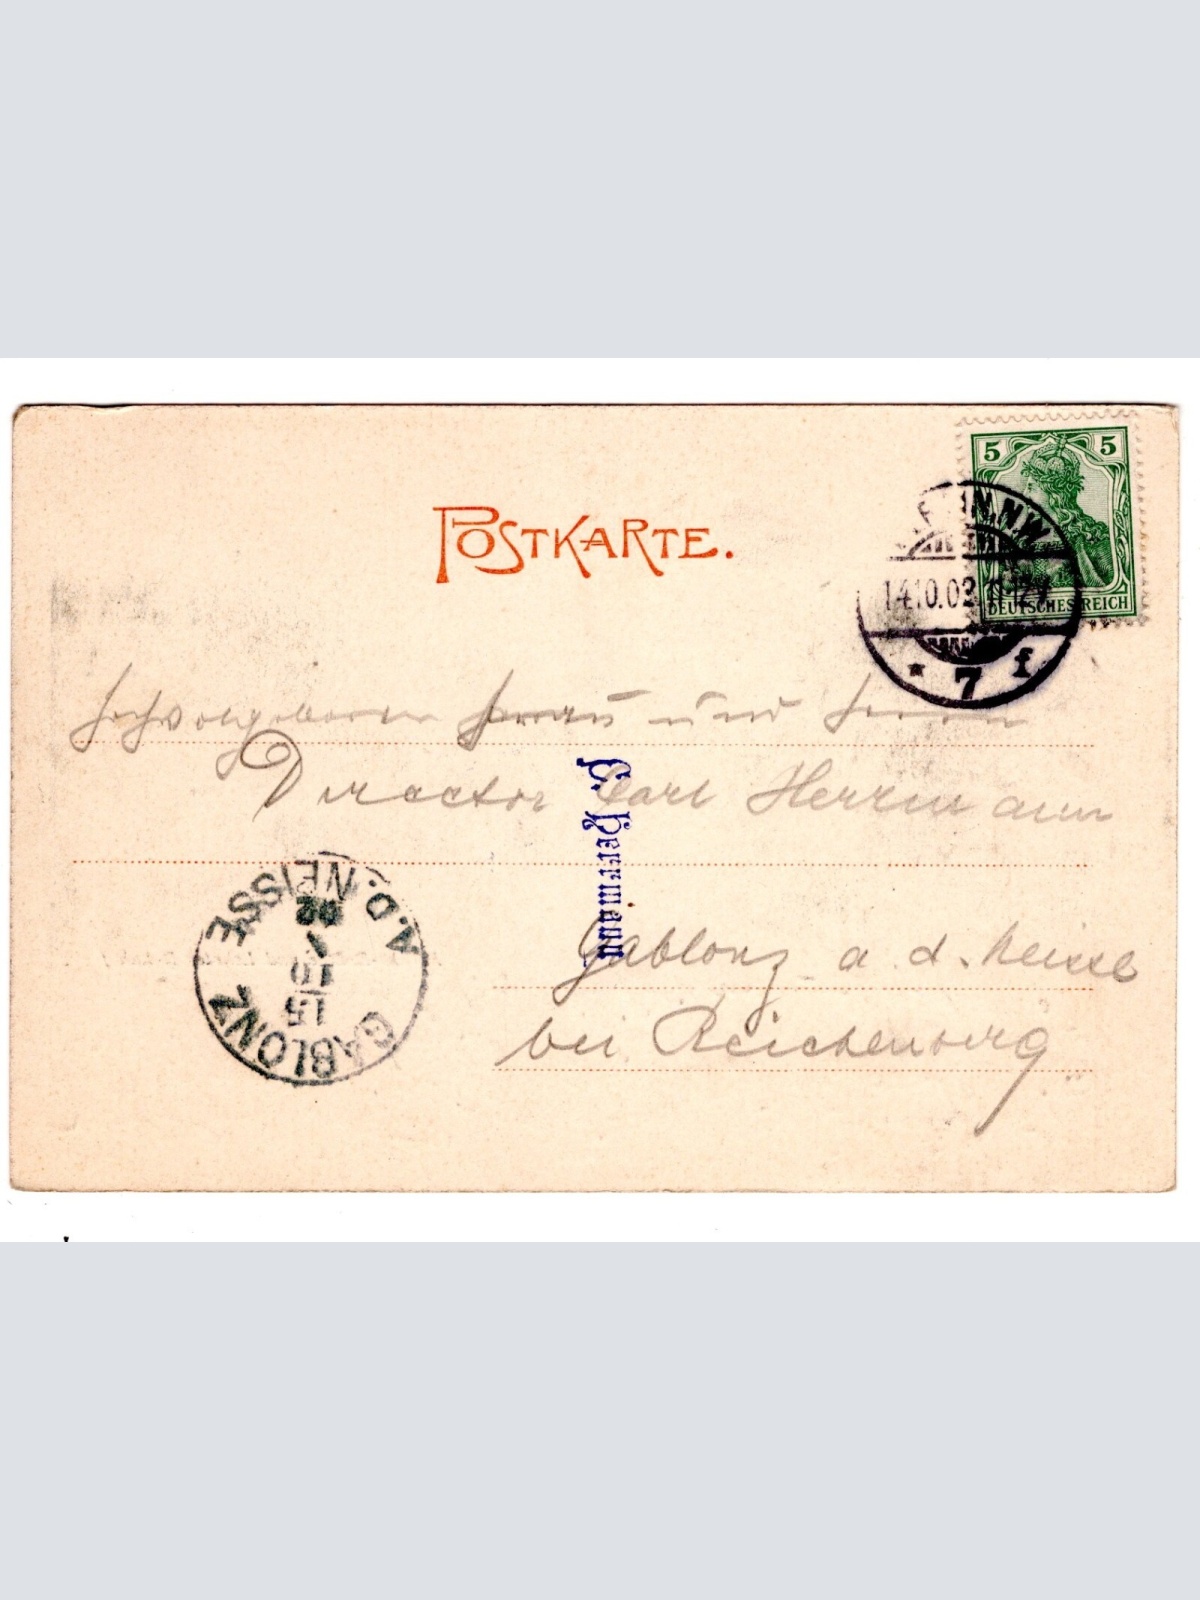 POSTKARTE.
5 5
DEUTSCHES REICH
BERLIN.N.W.
14.10.02. 11-12V
* 7 f
Hochwolgeboren Frau und Herrn
Director Carl Herrmann
Herrmann
Gablonz a. d. Neisse
bei Reichenberg
GABLONZ A.D. NEISSE
15
10
02